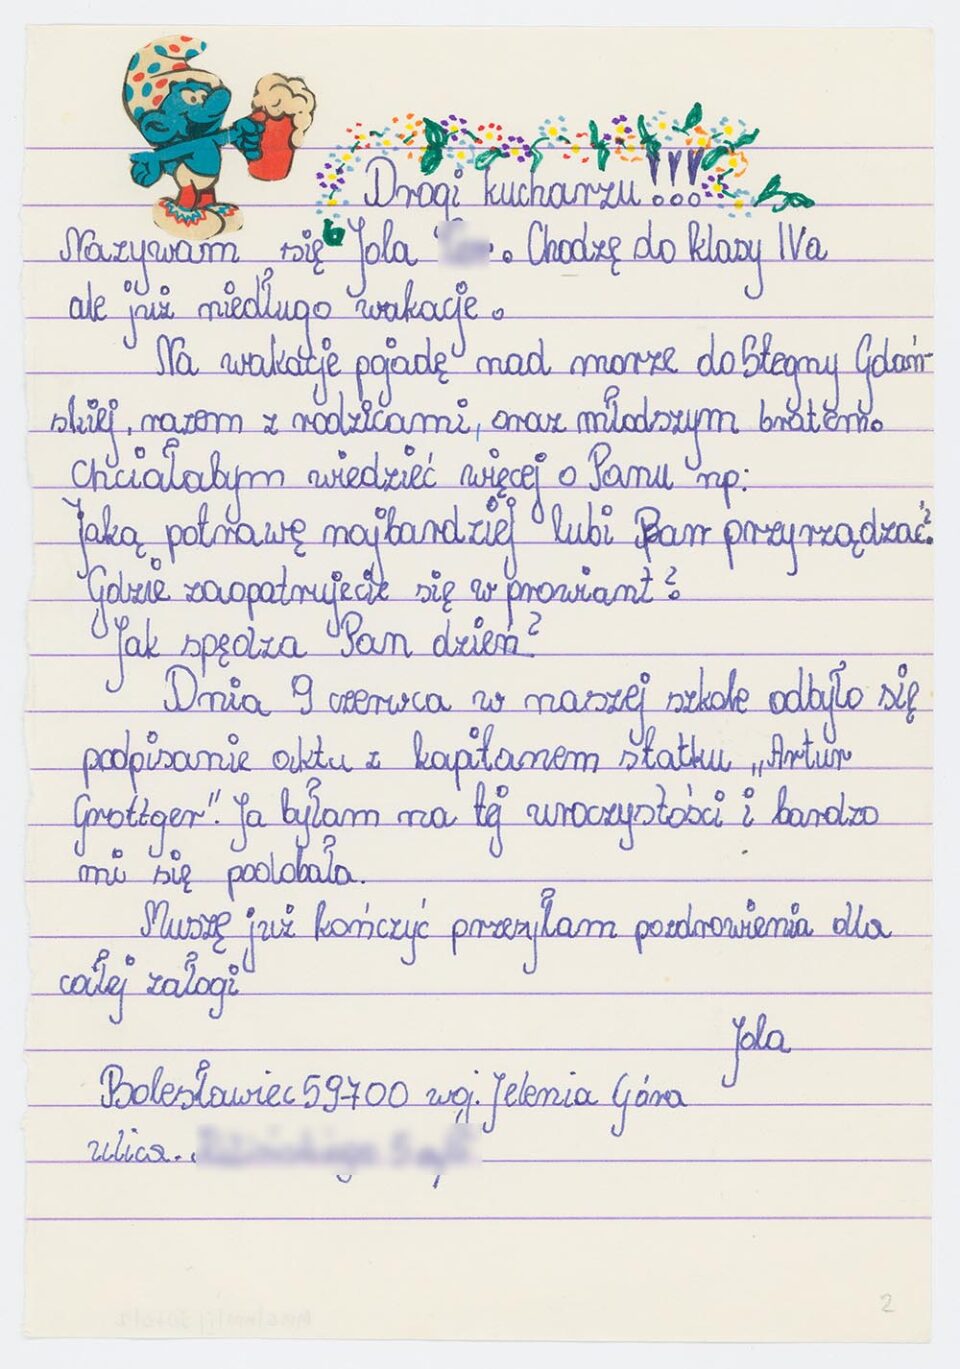 Drogi kucharzu!!!
Nazywam się Jola . Chodzę do klasy IVa
ale już niedługo wakacje.
Na wakacje pojadę nad morze do Stegny Gdań-
skiej, razem z rodzicami, oraz młodszym bratem.
Chciałabym wiedzieć więcej o Panu np:
Jaką potrawę najbardziej lubi Pan przyrządzać?
Gdzie zaopatrujecie się w prowiant?
Jak spędza Pan dzień?
Dnia 9 czerwca w naszej szkole odbyło się
podpisanie aktu z kapitanem statku „Artur
Grottger". Ja byłam na tej uroczystości i bardzo
mi się podobała.
Muszę już kończyć przesyłam pozdrowienia dla
całej załogi
Jola
Bolesławiec 59-700 woj. Jelenia Góra
ulica.
2